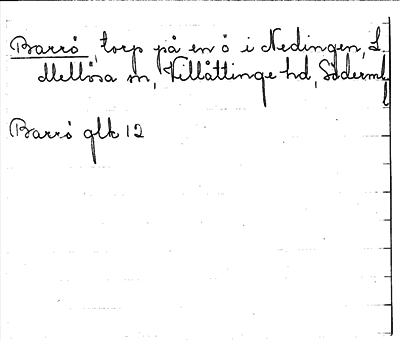 Barrö, torp på en ö i Nedingen, L.
Mellösa sn, Villåttinge hd, Söderml
Barrö glk 12